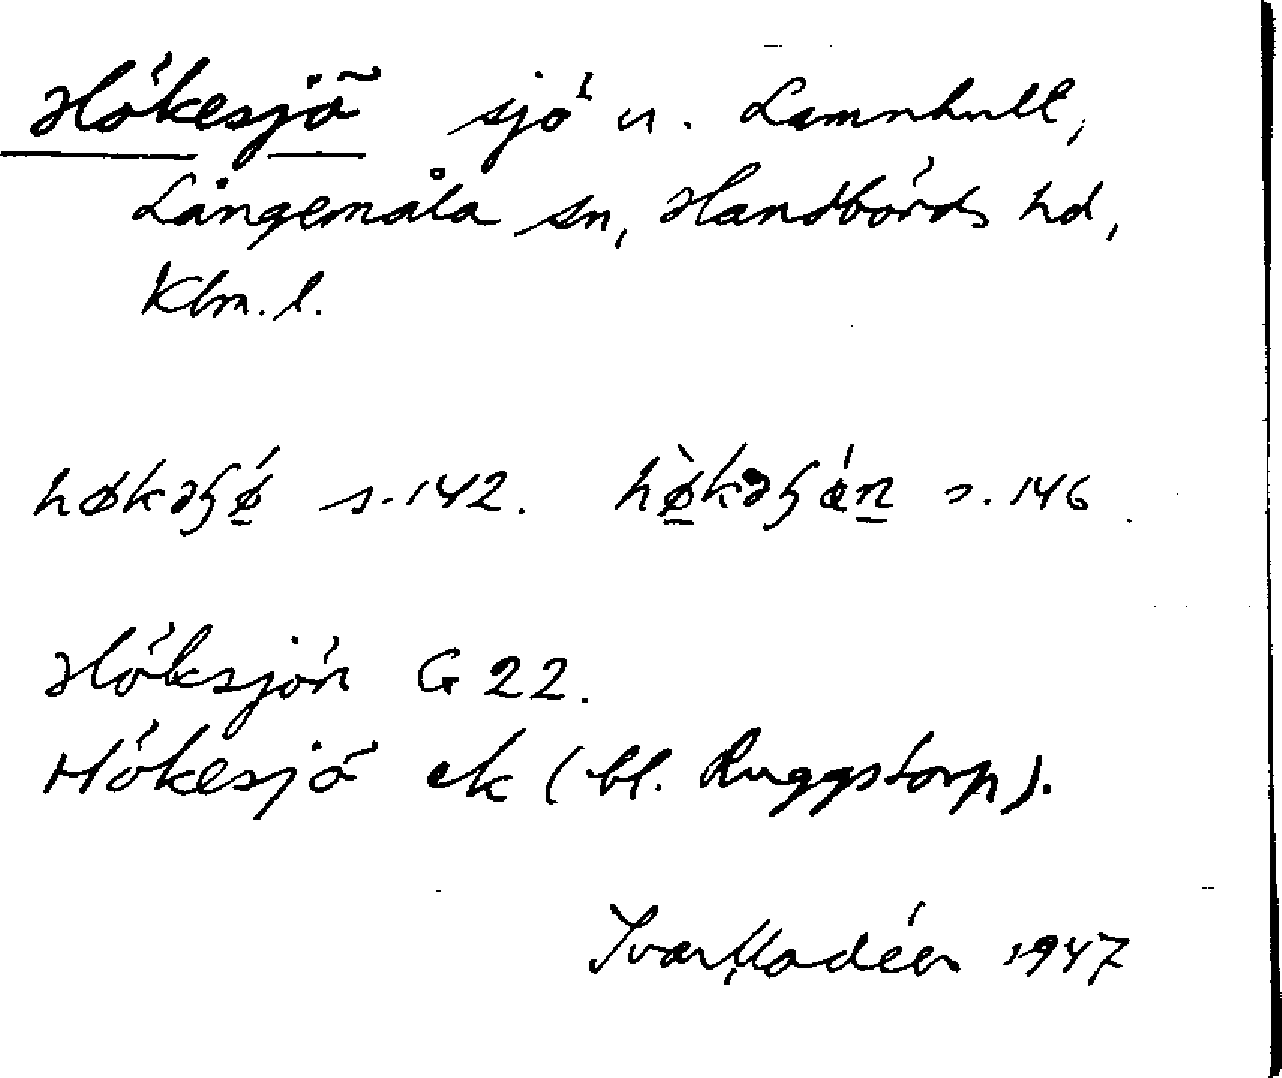 Hökesjö sjö n. Lamnhult,
Långemåla sn, Handbörds hd,
Klm. l.
s. 142. s. 146.
Höksjön G 22.
Hökesjö ek (bl. Ruggstorp).
Ivar Modéer 1947